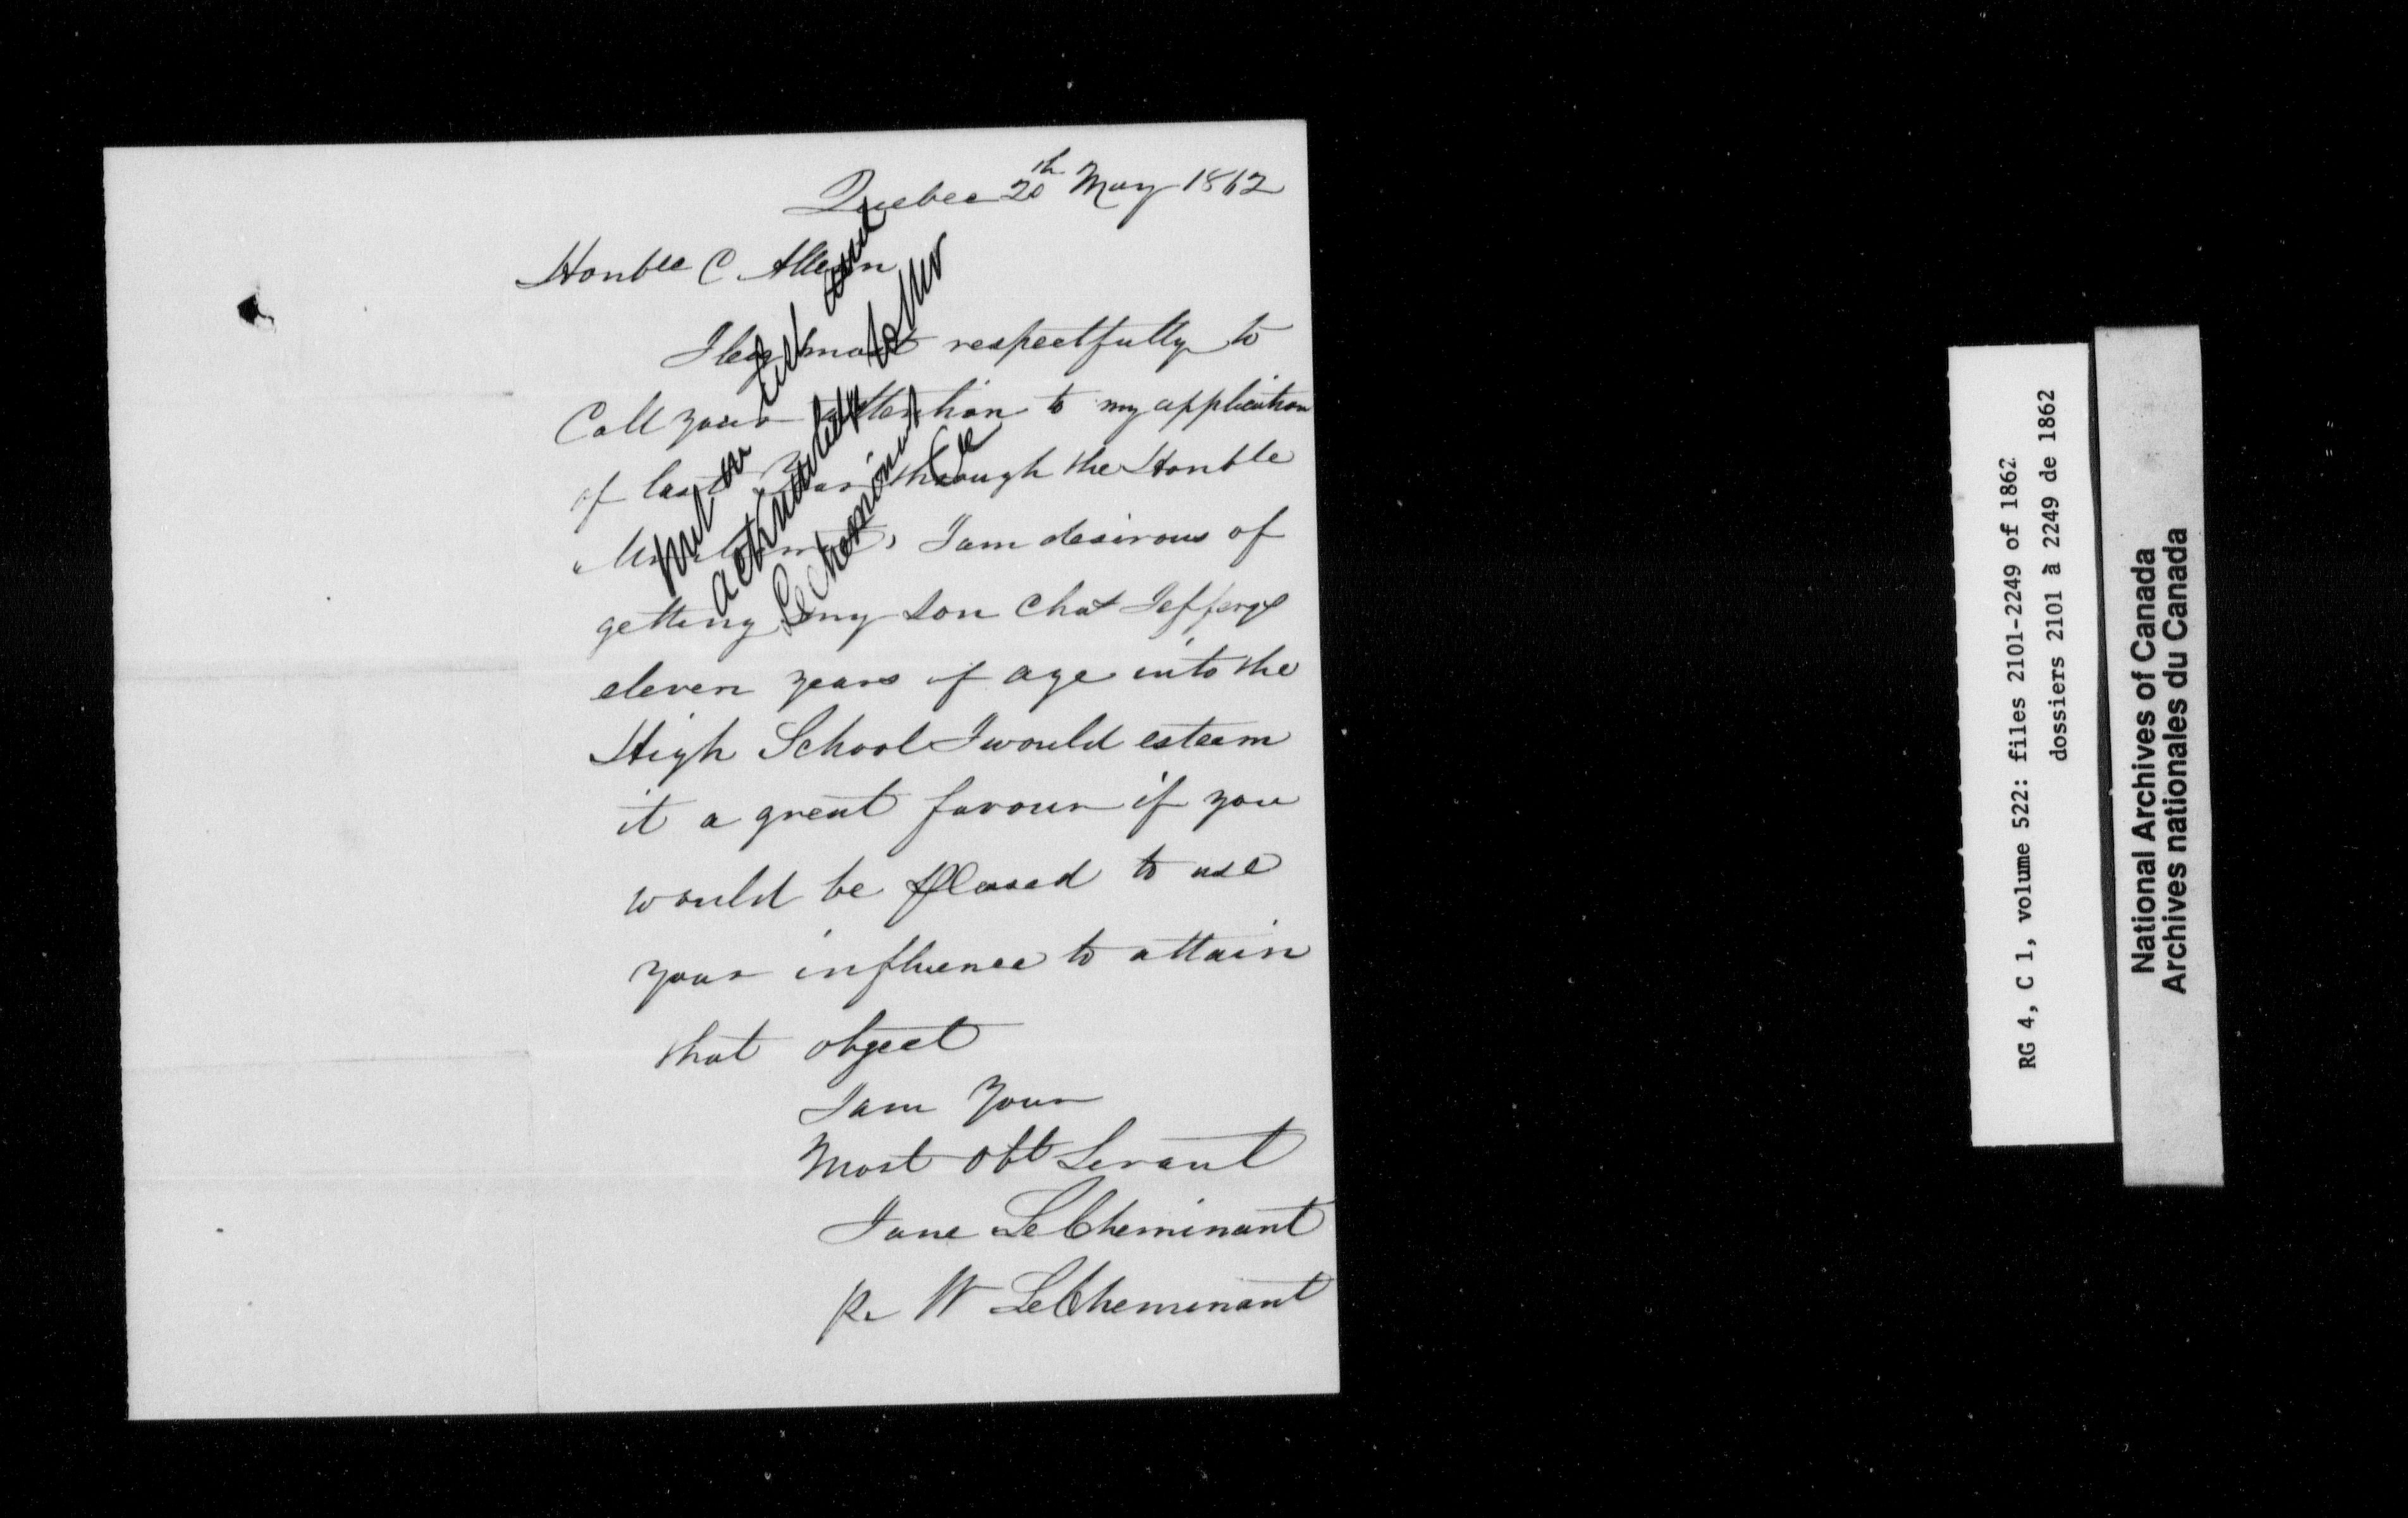 Quebec 20th May 1862
Honble C Alleyn
I beg most respectfully to
Call your attention to my application
of last Year through the Honble
I am desirous of
getting my Son Chas Jeffery
eleven years of age into the
High School I would esteem
it a great favour if you
would be pleased to use
your influence to attain
that object
I am Your
Most Obt Servant
Jane LeCheminant
Pr W LeCheminant
Put on list and
acknowledge to Mr
LeCheminant
RG 4, C 1, volume 522: files 2101-2249 of 1862
dossiers 2101 à 2249 de 1862
National Archives of Canada
Archives nationales du Canada